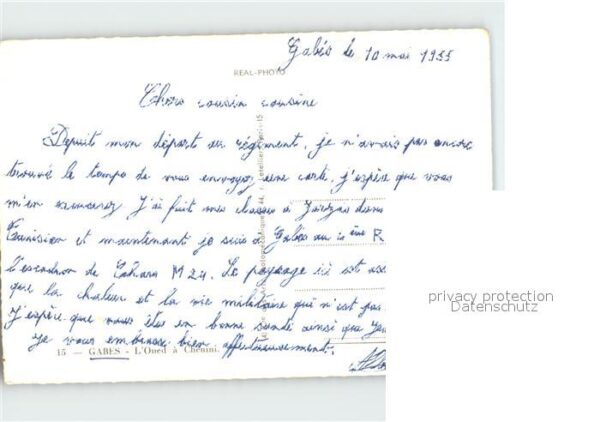 Gabès le 10 mai 1955
REAL-PHOTO
Chers cousin cousine
Depuit mon départ au régiment, je n'avais pas encore
trouvé le temps de vous envoyez une carte, j'espère que vous
m'en excuserez J'ai fait mes classes à Zarzis dans
Tunisien et maintenant je suis à Gabès au 2 ème R
l'escadron de Chars M 24. Le paysage ici est
que la chaleur et la vie militaire qui n'est pas
J'espère que vous êtes en bonne santé ainsi que
Je vous embrasse bien affectueusement.
15 - GABES - L'Oued à Chenini.
privacy protection
Datenschutz